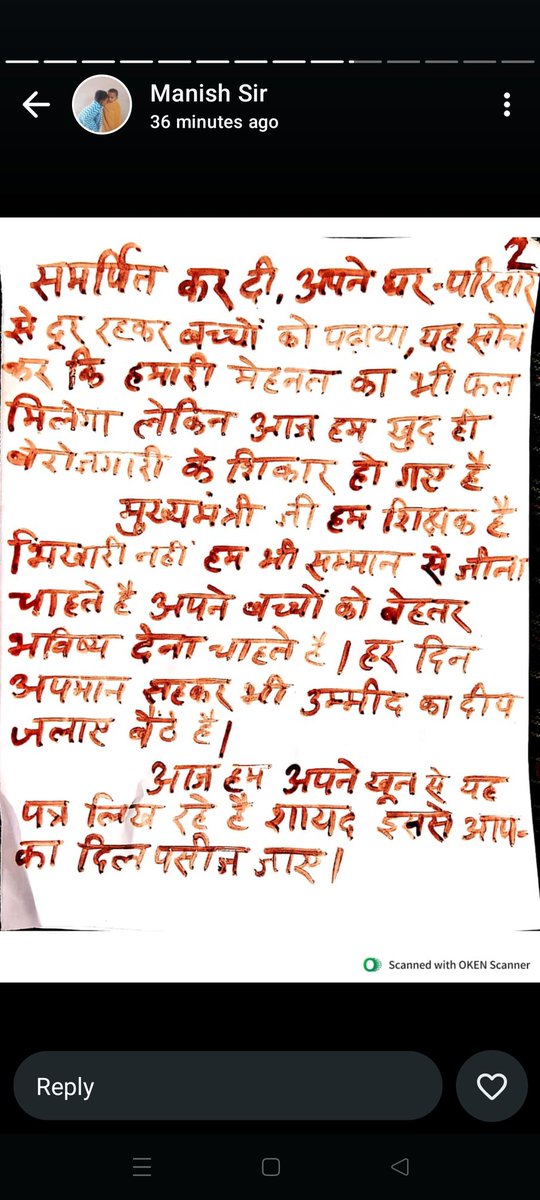 Manish Sir
36 minutes ago
2
समर्पित कर दी, अपने घर-परिवार
से दूर रहकर बच्चों को पढाया, यह सोच
कर कि हमारी मेहनत का भी फल
मिलेगा लेकिन आज हम खुद ही
बेरोजगारी के शिकार हो गए है
मुख्यमंत्री जी हम शिक्षक है
भिखारी नहीं हम भी सम्मान से जीना
चाहते है अपने बच्चों को बेहतर
भविष्य देना चाहते है । हर दिन
अपमान सहकर भी उम्मीद का दीप
जलाए बैठे है ।
आज हम अपने खून से यह
पत्र लिख रहे है शायद इससे आप-
का दिल पसीज जाए ।
Scanned with OKEN Scanner
Reply